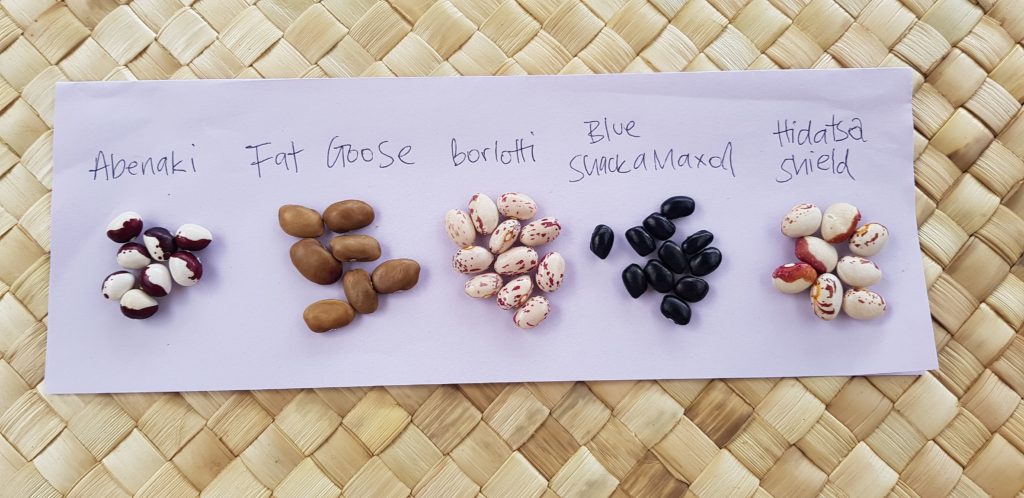 Abenaki
Fat Goose
borlotti
Blue
shackamaxol
Hidatsa
shield